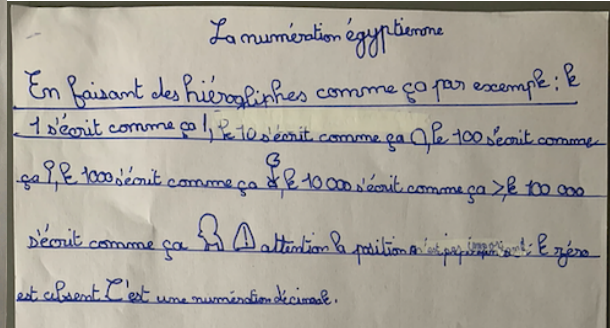 La numération égyptienne
En faisant des hiérogliphes comme ça par exemple : le
1 s'écrit comme ça |, le 10 s'écrit comme ça ∩, le 100 s'écrit comme
ça ?, le 1000 s'écrit comme ça , le 10 000 s'écrit comme ça >, le 100 000
s'écrit comme ça ⚠ attention la position n'est pas important : le zéro
est absent. C'est une numération décimale.